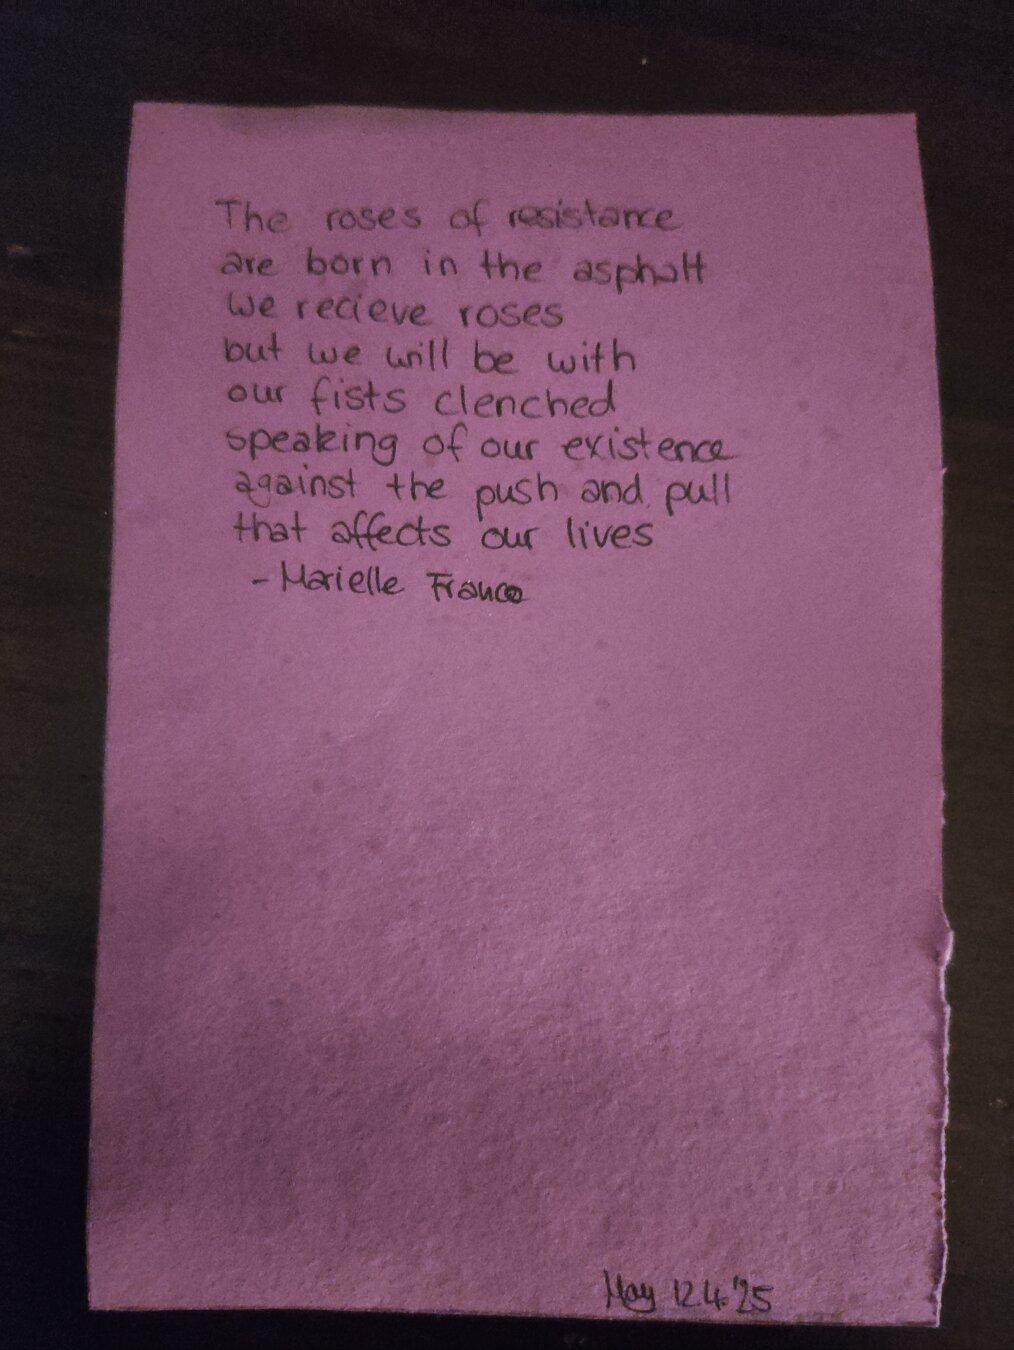 The roses of resistance
are born in the asphalt
we recieve roses
but we will be with
our fists clenched
speaking of our existence
against the push and pull
that affects our lives
- Marielle Franco
May 12.4.'25